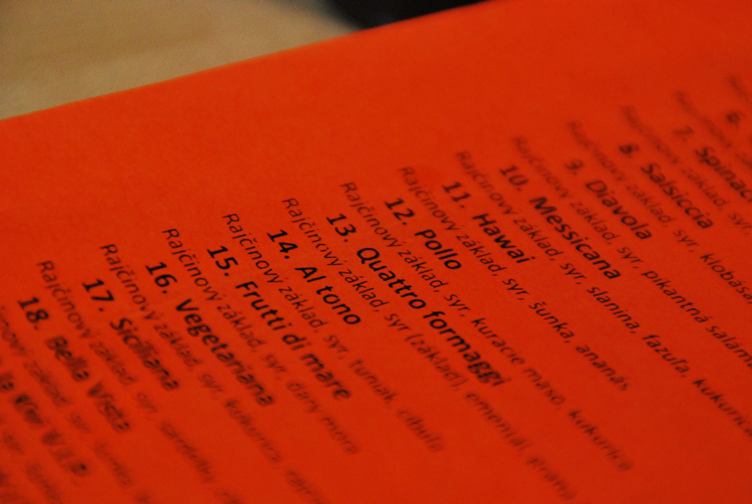 7. Spinac
8. Salsiccia
Rajčinový základ, syr, klobás
9. Diavola
Rajčinový základ, syr, pikantná salám
10. Messicana
Rajčinový základ, syr, slanina, fazuľa, kukurica
11. Hawai
Rajčinový základ, syr, šunka, ananás
12. Pollo
Rajčinový základ, syr, kuracie mäso, kukurica
13. Quattro formaggi
Rajčinový základ, syr (základ), ementál,
14. Al tono
Rajčinový základ, syr, tuniak, cibuľa
15. Frutti di mare
Rajčinový základ, syr, dary mora
16. Vegetariana
Rajčinový základ, syr, kukurica,
17. Siciliana
Rajčinový základ, syr,
18. Bella Vista
základ, syr,
V.I.P.